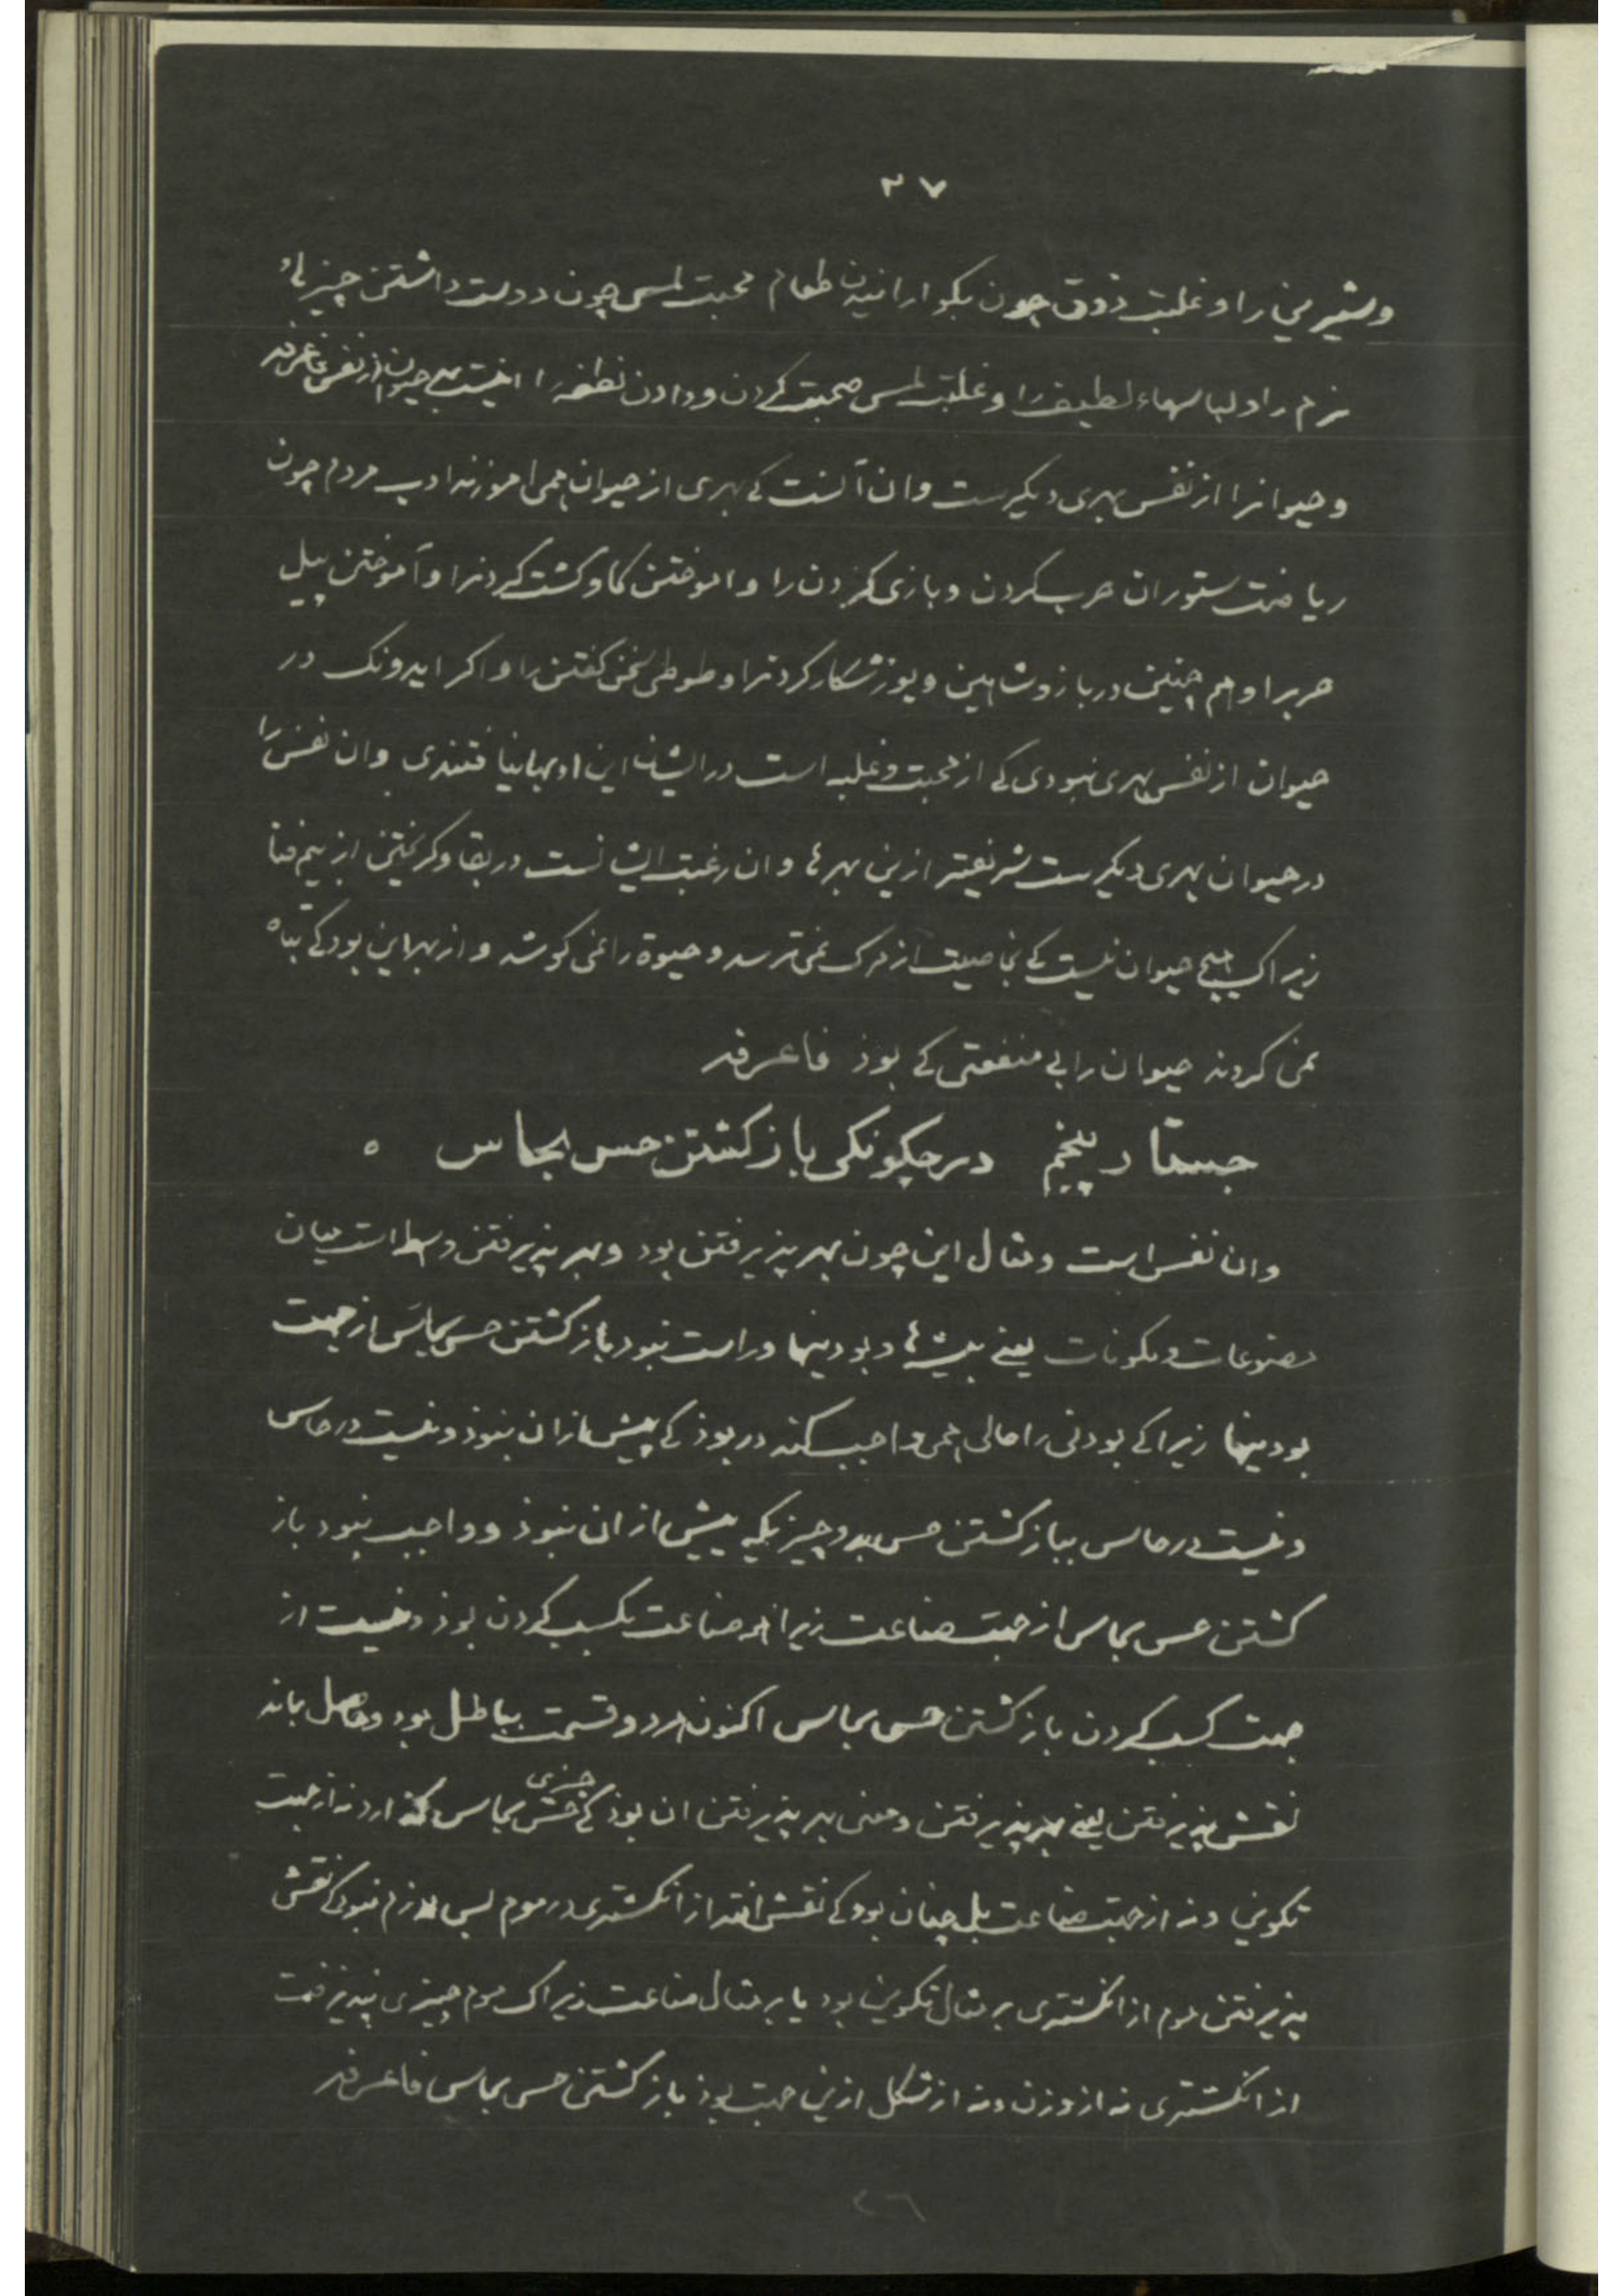 ٢٧
وشیرینی را و غلبت ذوق چون بگوارانیدن طعام محبت لمس چون دوست داشتن چیزهاء
نرم را و لباسهاء لطیف را و غلبت لمس صحبت کردن و دادن نطفه را اینست بهر حیوان از نفس فاعرفه
و حیوانرا از نفس بهری دیگرست وان آنست کی بهری از حیوان همی اموزند ادب مردم چون
ریاضت ستوران حرب کردن و بازی کردن را و اموختن کاو کشت کردنرا و آموختن پیل
حربرا و هم چنین در باز و شاهین و یوز شکار کردنرا و طوطی سخن کفتن را و اکر ایدونک در
حیوان از نفس بهری نبودی کی از محبت و غلبه است در ایشان این ادبها نیافتندی وان نفس را
در حیوان بهری دیکرست شریفتر ازین بهرها و ان رغبت ایشانست در بقا و کریختن از بیم فنا
زیراک هیچ حیوان نیست کی بخاصیت از مرک نمی ترسد و حیوة را نمی کوشد و از بهر این بود کی تباه
نمی کردند حیوان را بی منفعتی کی بوذ فاعرفه
جستار پنجم در چکونکی باز کشتن حس بحاس ه
وان نفس است و مثال این چون بهر پذیرفتن بود و بهر پذیرفتن وسط است میان
مصنوعات و مکونات یعنی پیشه ها و بودینها و راست نبود باز کشتن حس بحاس از جهت
بودینها زیرا کی بودنی را حالی همی واجب کند در بوذ کی پیش ازان نبوذ و نیست در حاس
و نیست در حاس بباز کشتن حس بدو چیزیکه پیش از ان نبوذ و واجب نبود باز
کشتن حس بحاس از جهت صناعت زیرا هر صناعت بکسب کردن بوذ و نیست از
جهت کسب کردن باز کشتن حس بحاس اکنون هر دو قسمت باطل بود و حاصل بماند
نقش پذیرفتن یعنی بهر پذیرفتن و معنی بهر پذیرفتن ان بوذ کی حس چیزی بحاس کذارد نه از جهت
تکوینی و نه از جهت صناعت بل چنان بود کی نقش افتد از انکشتری در موم پس لازم نبود کی نقش
پذیرفتن موم از انکشتری بر مثال تکوینی بود یا بر مثال صناعت زیراک موم چیزی نپذیرفت
از انکشتری نه از وزن و نه از شکل ازین جهت بوذ باز کشتن حس بحاس فاعرفه